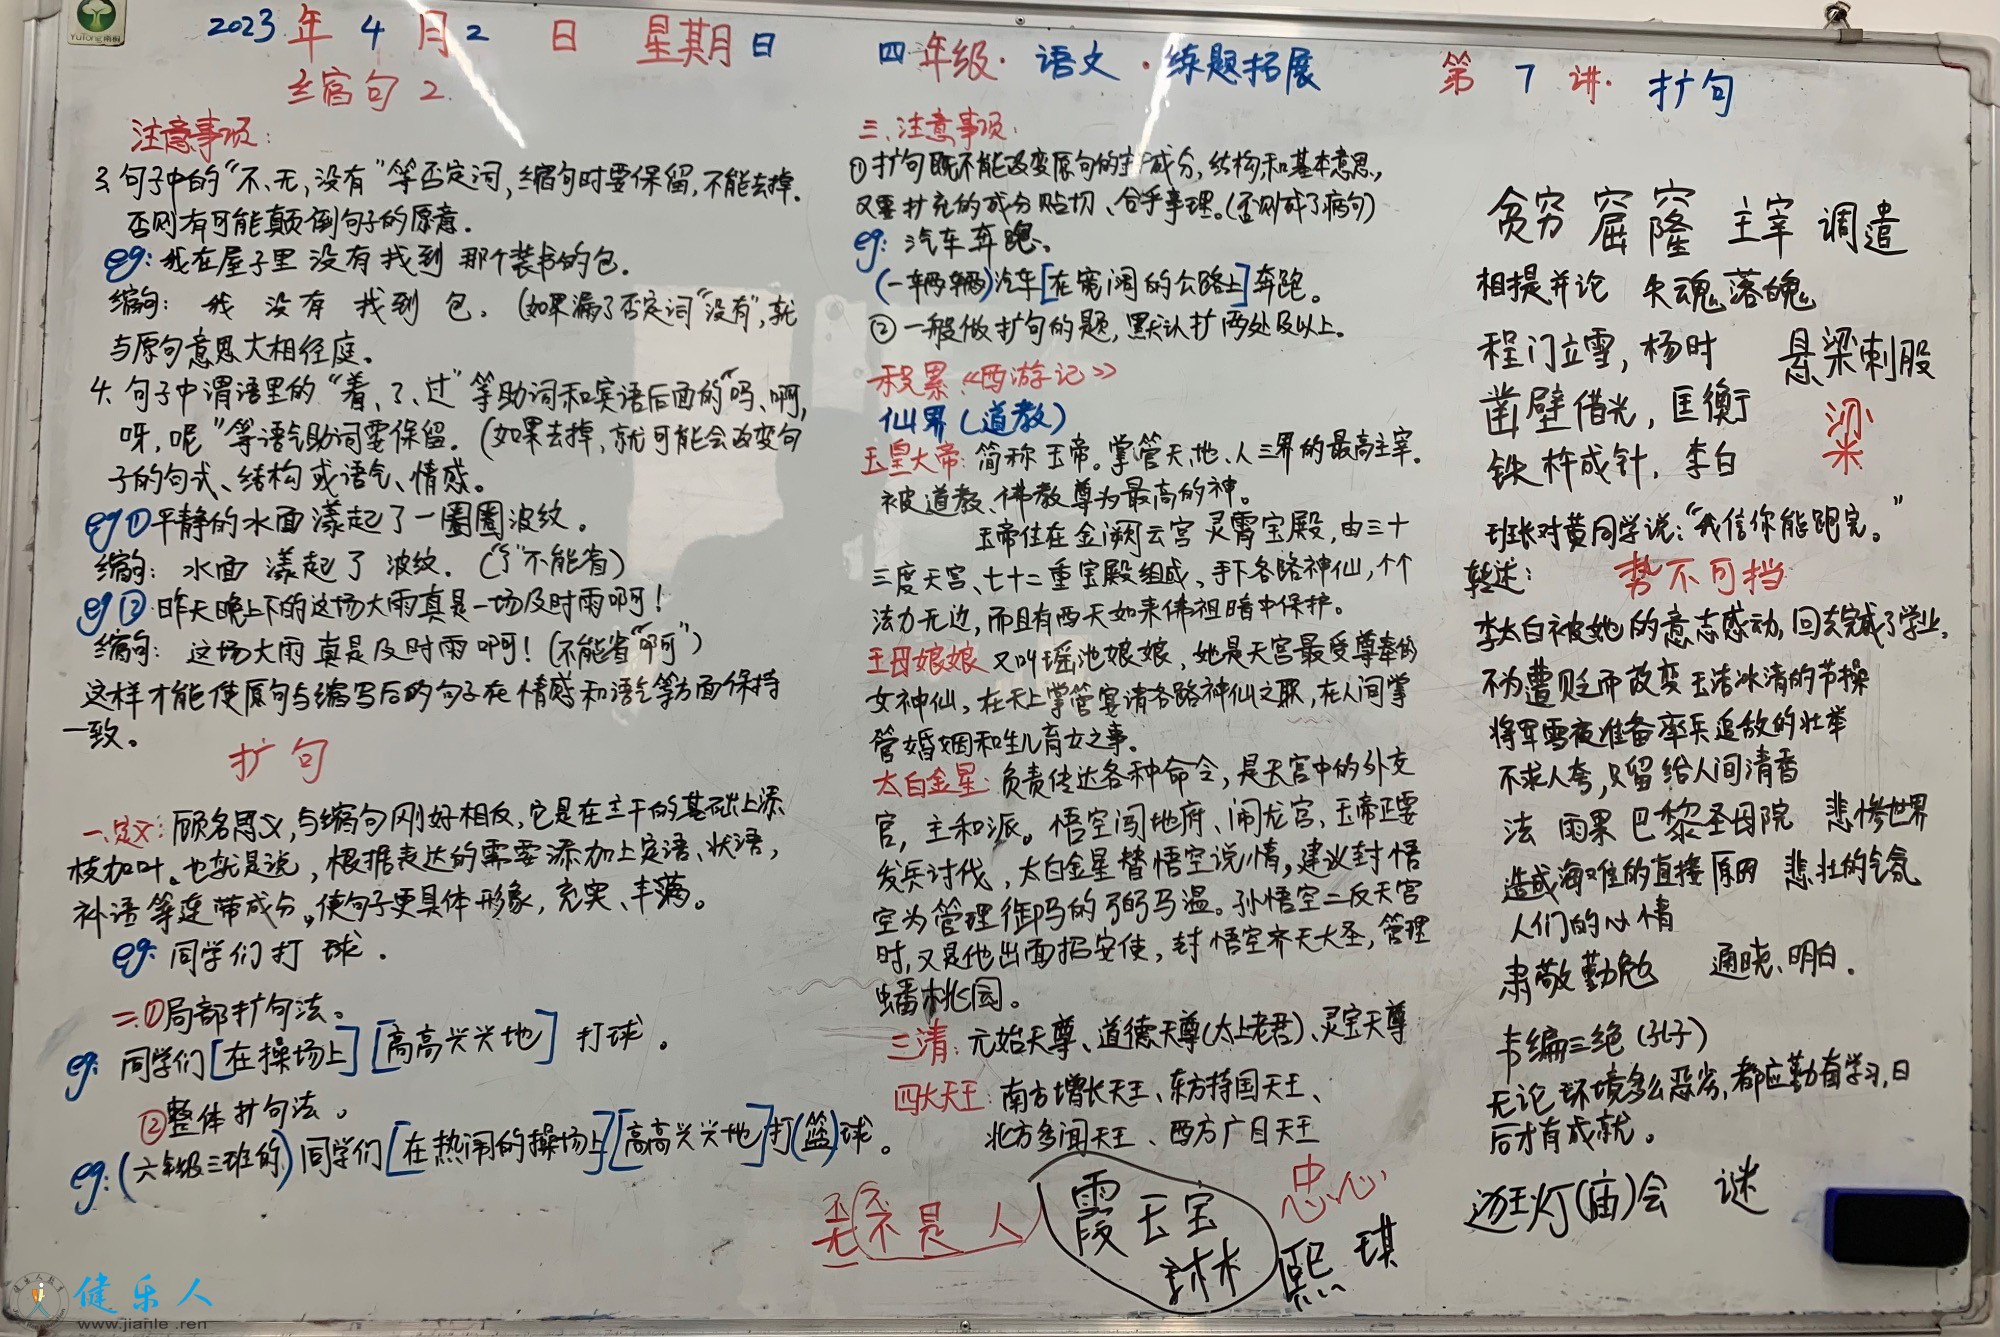 2023年4月2日 星期日 四年级·语文·练题拓展 第7讲·扩句
缩句2
注意事项:
3.句子中的“不、无,没有”等否定词,缩句时要保留,不能去掉.
否则有可能颠倒句子的原意.
eg:我在屋子里 没有 找到 那个装书的包.
缩句: 我 没有 找到 包. (如果漏了否定词“没有”,就
与原句意思大相径庭。
4.句子中谓语里的“着、了、过”等助词和宾语后面的“吗、啊,
呀,呢”等语气助词要保留。(如果去掉,就可能会改变句
子的句式、结构或语气、情感。
eg①平静的水面漾起了一圈圈波纹。
缩句: 水面 漾起了 波纹. (“了”不能省)
eg②昨天晚上下的这场大雨真是一场及时雨啊!
缩句: 这场大雨真是及时雨啊!(不能省“啊”)
这样才能使原句与缩写后的句子在情感和语气等方面保持
一致。
扩句
一.定义:顾名思义,与缩句刚好相反,它是在主干的基础上添
枝加叶。也就是说,根据表达的需要添加上定语、状语,
补语等连带成分。使句子更具体形象,充实、丰满。
eg: 同学们打 球.
二.①局部扩句法。
eg: 同学们[在操场上][高高兴兴地] 打球。
②整体扩句法。
eg:(六年级三班的)同学们[在热闹的操场上][高高兴兴地]打(篮)球。
三.注意事项:
①扩句既不能改变原句的主干成分,结构和基本意思,
又要扩充的成分贴切、合乎事理。(否则成了病句)
eg: 汽车奔跑。
(一辆辆)汽车[在宽阔的公路上]奔跑。
②一般做扩句的题,默认扩两处及以上。
积累《西游记》
仙界(道教)
玉皇大帝:简称玉帝。掌管天、地、人三界的最高主宰.
被道教、佛教尊为最高的神。
玉帝住在金阙云宫灵霄宝殿,由三十
三度天宫、七十二重宝殿组成、手下各路神仙,个个
法力无边,而且有西天如来佛祖暗中保护。
王母娘娘 又叫瑶池娘娘,她是天宫最受尊奉的
女神仙,在天上掌管宴请各路神仙之职,在人间掌
管婚姻和生儿育女之事.
太白金星:负责传达各种命令,是天宫中的外交
官,主和派。悟空闯地府、闹龙宫,玉帝正要
发兵讨伐,太白金星替悟空说情,建议封悟
空为管理御马的弼马温。孙悟空二反天宫
时,又是他出面招安使,封悟空齐天大圣,管理
蟠桃园。
三清:元始天尊、道德天尊(太上老君)、灵宝天尊
四大天王:南方增长天王、东方持国天王、
北方多闻天王、西方广目天王
不是人
霞 玉宝
忠心
熙 琪
贫穷 窟窿 主宰 调遣
相提并论 失魂落魄
程门立雪,杨时 悬梁刺股
凿壁借光,匡衡
铁杵成针,李白
班长对黄同学说:“我信你能跑完。”
转述: 势不可挡
李太白被她的意志感动,回去完成了学业.
不为遭贬而改变玉洁冰清的节操
将军雪夜准备率兵追敌的壮举
不求人夸,只留给人间清香
法 雨果 巴黎圣母院 悲惨世界
造成海难的直接原因 悲壮的气氛
人们的心情
肃敬勤勉 通晓、明白.
韦编三绝(孔子)
无论环境多么恶劣,都应勤奋学习,日
后才有成就。
逛灯(庙)会 谜
健乐人
www.jianle.ren